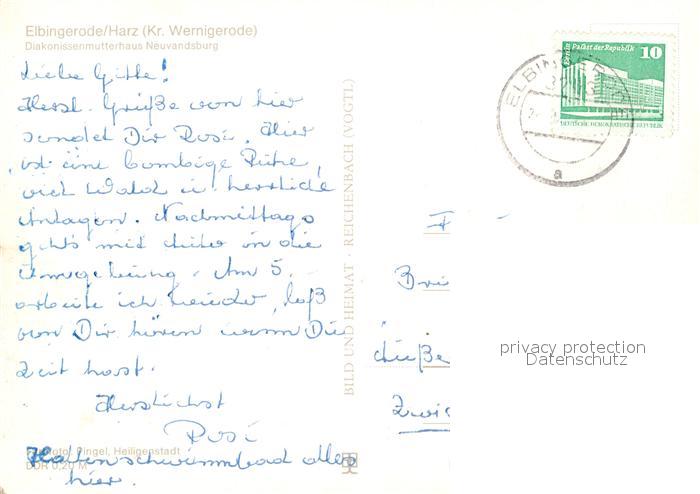 Elbingerode/Harz (Kr. Wernigerode)
Diakonissenmutterhaus Neuvandsburg
Liebe Githe!
Herzl. Grüße von hier
sendet Dir Rosi. Hier
ist eine bombige Ruhe,
viel Wald u. herrliche
Anlagen. Nachmittags
gehts mit in die
Umgebung. Am 5.
arbeite ich wieder, laß
von Dir hören wenn Du
Zeit hast.
Herzlichst
Rosi
Pingel, Heiligenstadt
DDR 0,20 M
Hallenschwimmbad alles
hier.
BILD UND HEIMAT · REICHENBACH (VOGTL)
Berlin Palast der Republik 10
DEUTSCHE DEMOKRATISCHE REPUBLIK
a
privacy protection
Datenschutz